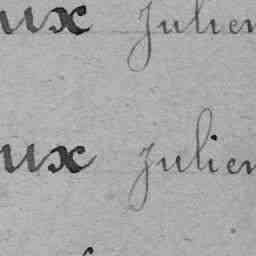 ux Julien
ux Julien